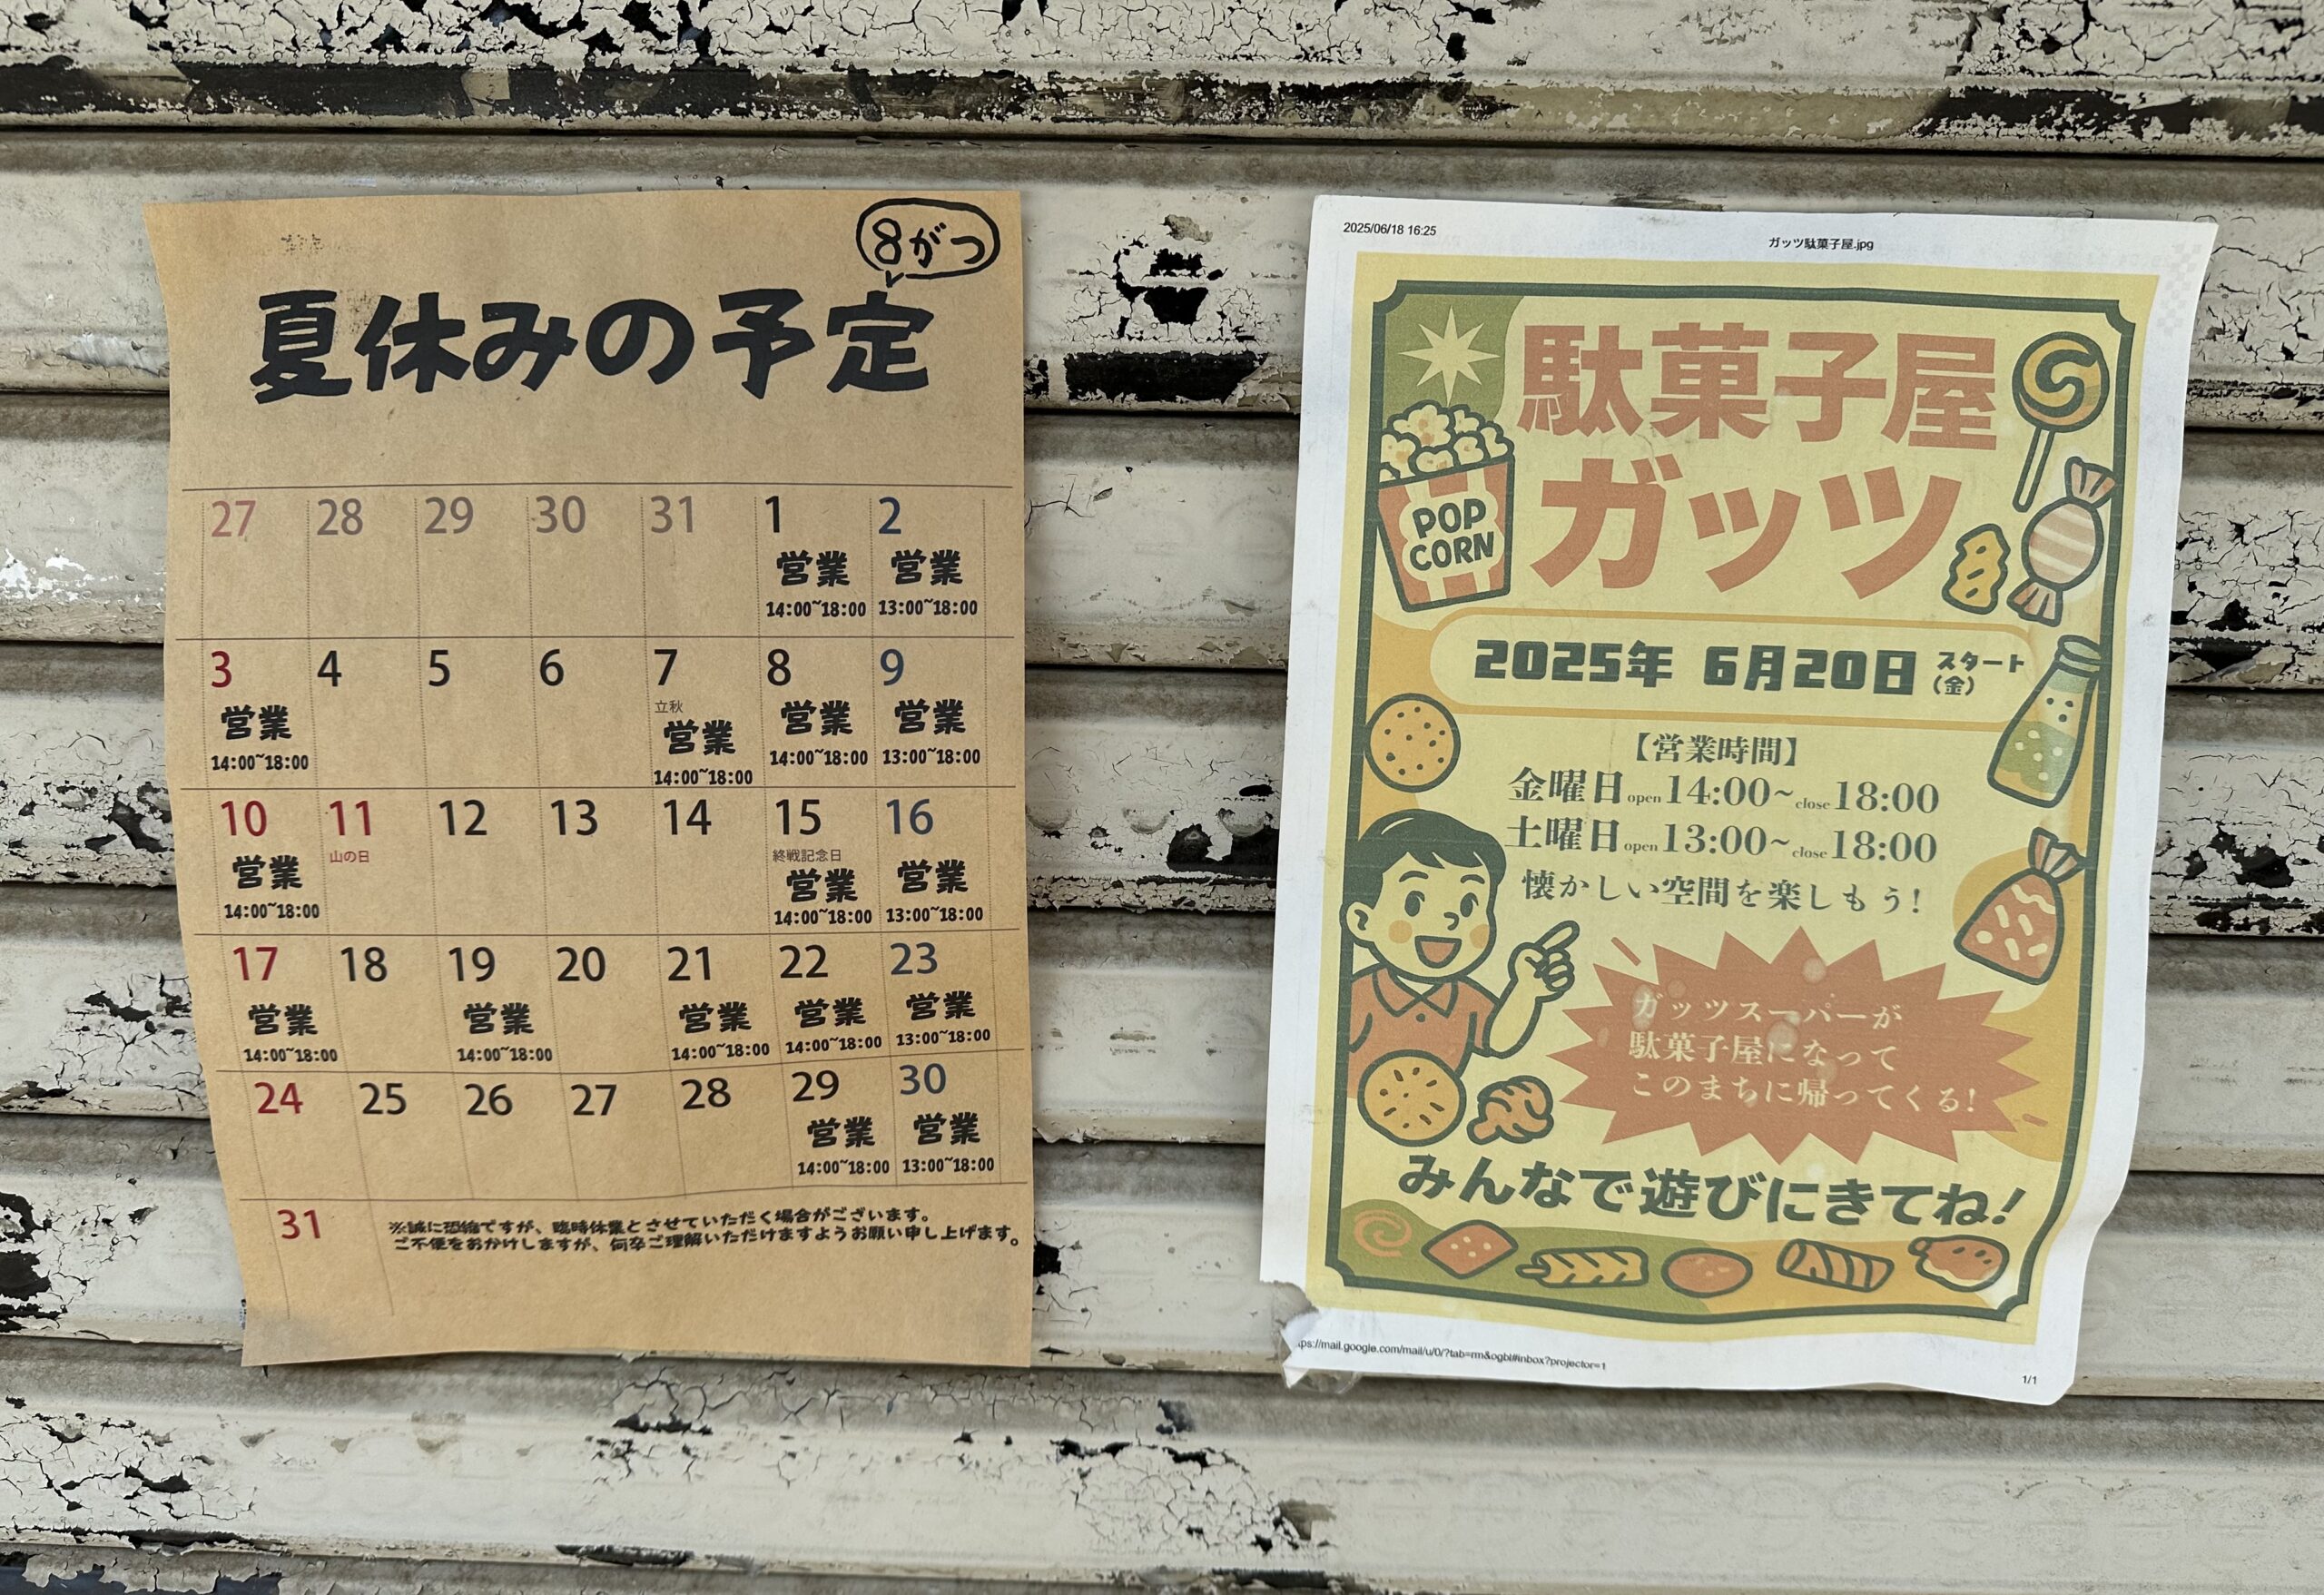 8がつ
夏休みの予定
27 28 29 30 31 1 2
営業 営業
14:00~18:00 13:00~18:00
3 4 5 6 7 8 9
立秋
営業 営業 営業 営業
14:00~18:00 14:00~18:00 14:00~18:00 13:00~18:00
10 11 12 13 14 15 16
山の日 終戦記念日
営業 営業 営業
14:00~18:00 14:00~18:00 13:00~18:00
17 18 19 20 21 22 23
営業 営業 営業 営業 営業
14:00~18:00 14:00~18:00 14:00~18:00 14:00~18:00 13:00~18:00
24 25 26 27 28 29 30
営業 営業
14:00~18:00 13:00~18:00
31
※誠に恐縮ですが、臨時休業とさせていただく場合がございます。
ご不便をおかけしますが、何卒ご理解いただけますようお願い申し上げます。
2025/06/18 16:25
ガッツ駄菓子屋.jpg
駄菓子屋
ガッツ
POP
CORN
2025年 6月20日 スタート
(金)
【営業時間】
金曜日open14:00~close18:00
土曜日open13:00~close18:00
懐かしい空間を楽しもう!
ガッツスーパーが
駄菓子屋になって
このまちに帰ってくる!
みんなで遊びにきてね!
ps://mail.google.com/mail/u/0/?tab=rm&ogbl#inbox?projector=1
1/1